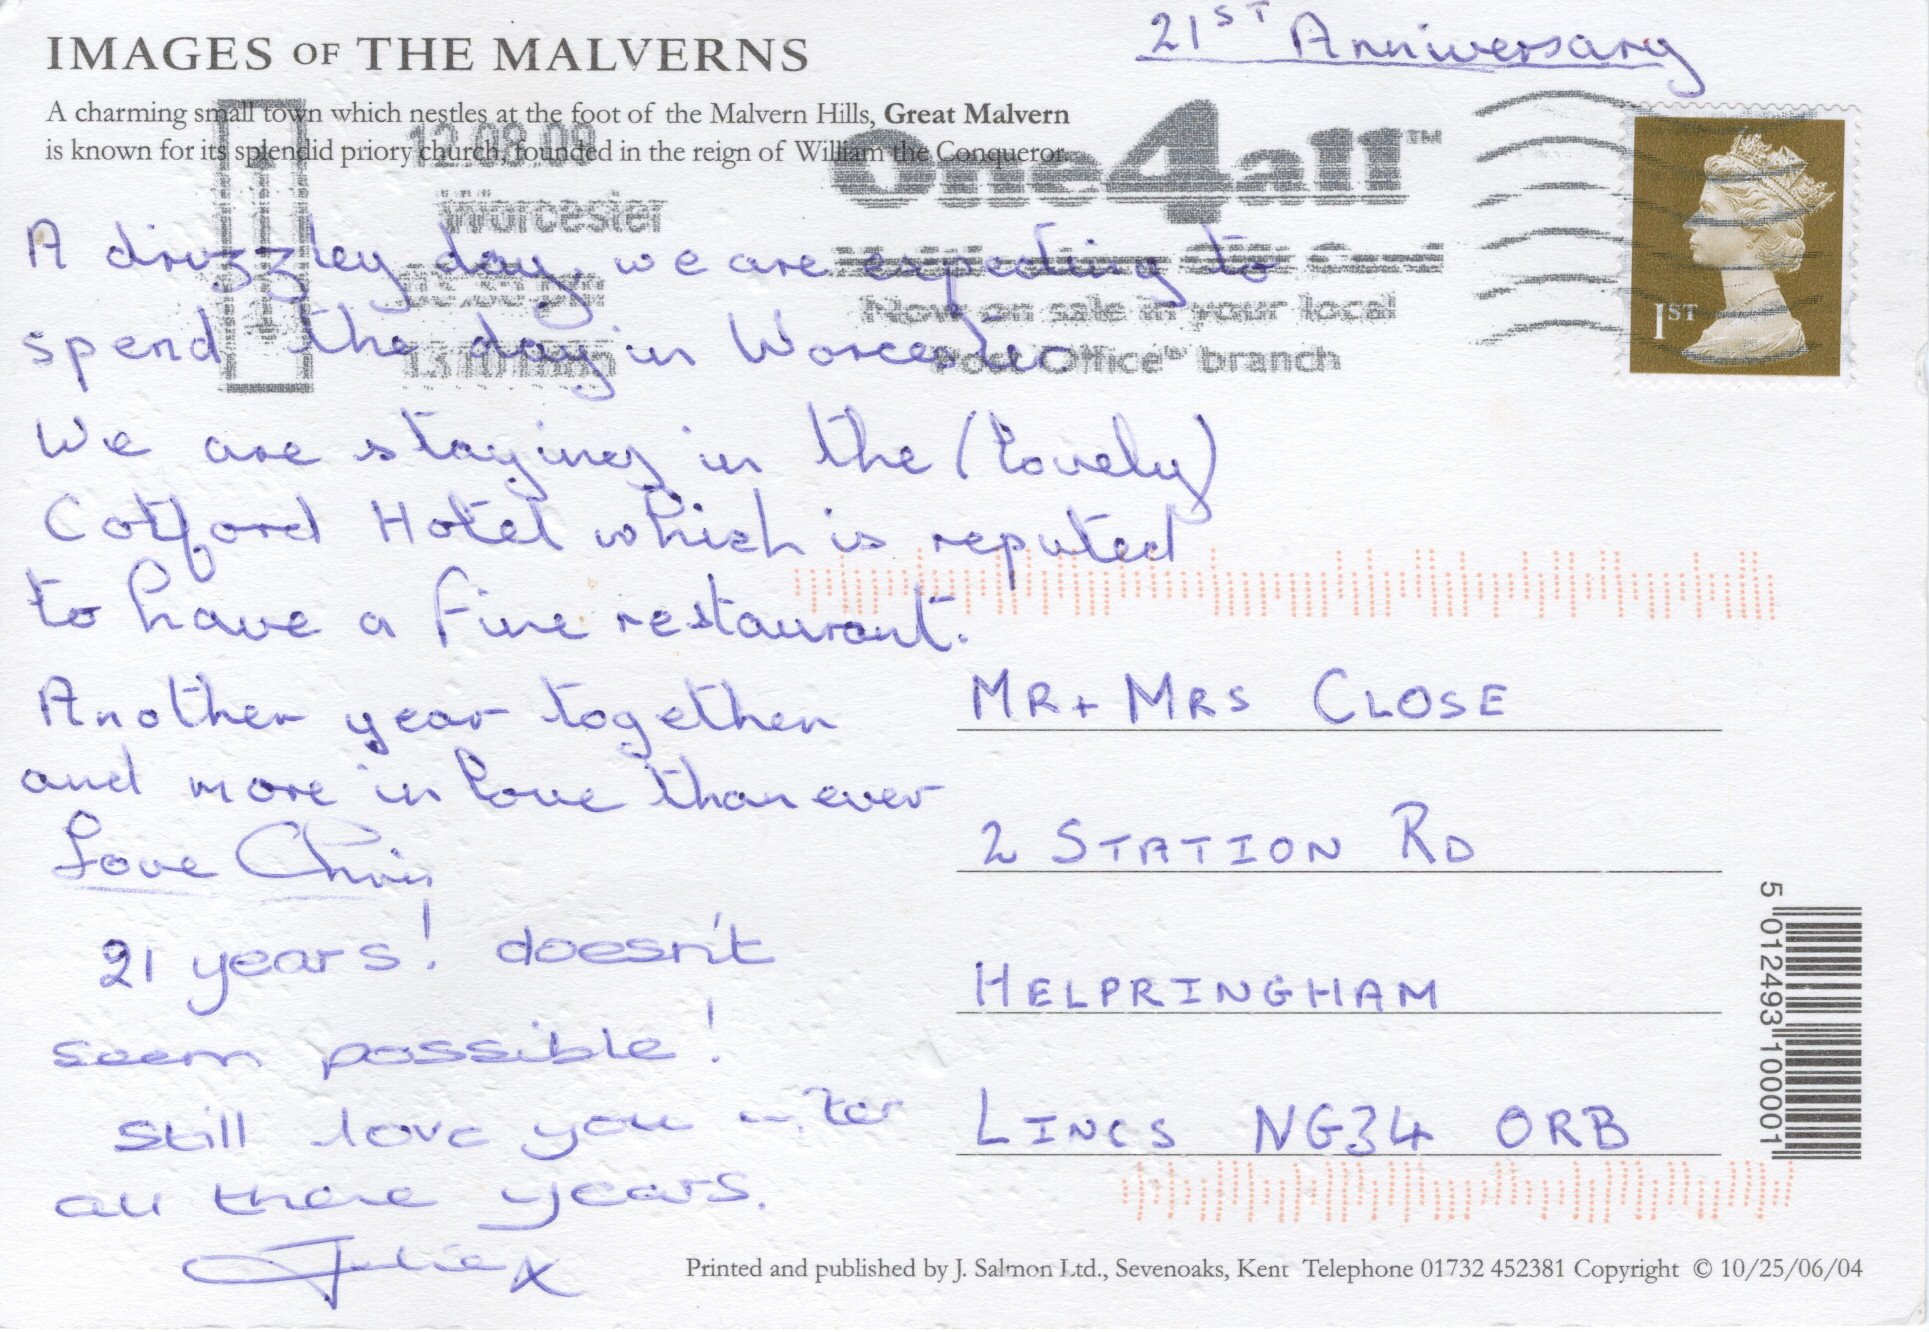 21ST Anniversary
IMAGES OF THE MALVERNS
A charming small town which nestles at the foot of the Malvern Hills, Great Malvern
is known for its splendid priory church, founded in the reign of William the Conqueror.
12.08.09
Worcester
One4all™
Gift Card
Now on sale in your local
Post Office® branch
1ST
A drizzley day, we are expecting to
spend the day in Worcester.
We are staying in the (lovely)
Cotford Hotel which is reputed
to have a fine restaurant.
Another year together
and more in love than ever
Love Chris
21 years! doesn't
seem possible!
still love you after
all these years.
Julie x
MR + MRS CLOSE
2 STATION RD
HELPRINGHAM
LINCS NG34 0RB
5 012493 100001
Printed and published by J. Salmon Ltd., Sevenoaks, Kent Telephone 01732 452381 Copyright © 10/25/06/04